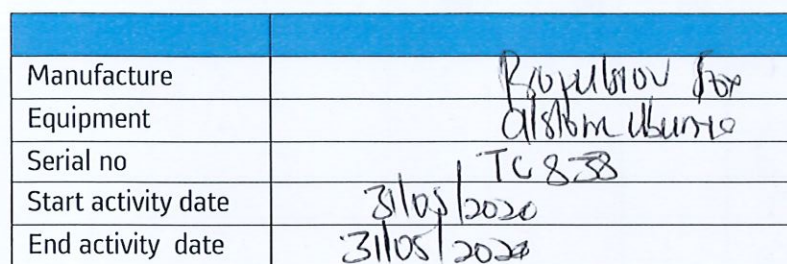 Manufacture Propulsion for
Equipment alstom ubunye
Serial no TC 838
Start activity date 31/05/2020
End activity date 31/05/2020